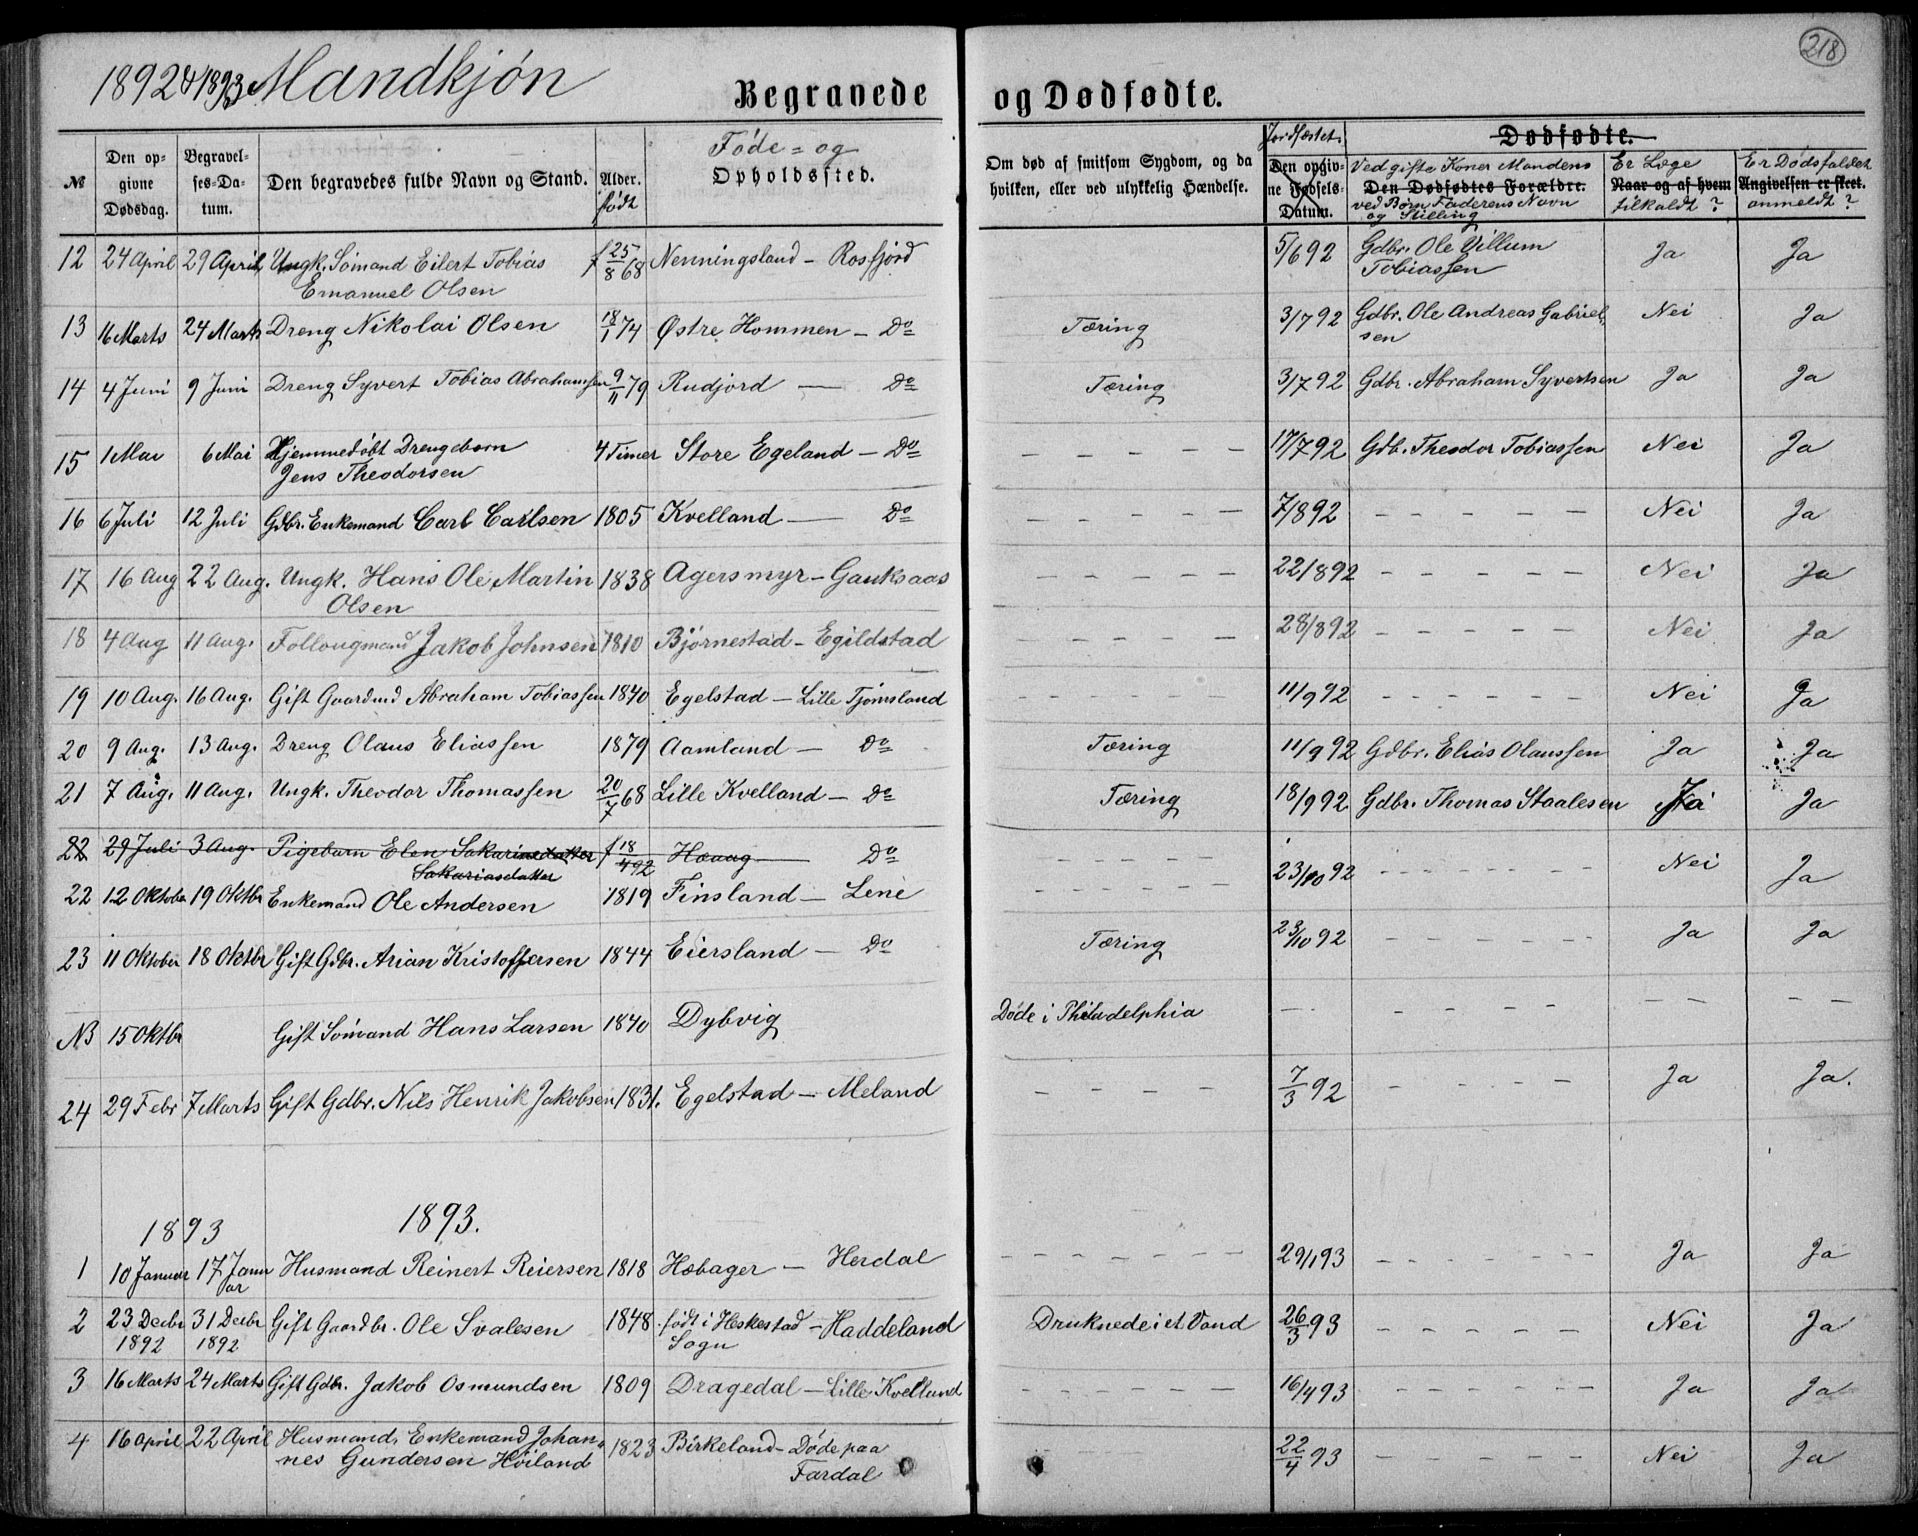 218
1892 & 1893 Mandkjøn
Begravede og Dødfødte.
№ | Den opgivne Dødsdag. | Begravelses-Datum. | Den begravedes fulde Navn og Stand. | Alder. født | Føde- og Opholdssted. | Om død af smitsom Sygdom, og da hvilken, eller ved ulykkelig Hændelse. | Jordfæstet. Den opgivne Fødsels-Datum. | Dødfødte. Ved gifte Koner Mandens Den Dødfødtes Forældre. ved Børn Faderens Navn og Stilling | Er Læge Naar og af hvem tilkaldt? | Er Dødsfaldet Angivelsen er skeet. anmeldt?
12 | 24 April | 29 April | Ungk. Sømand Eilert Tobias Emanuel Olsen | f 25/8 68 | Nenningsland – Rosfjord | | 5/6 92 | Gdbr. Ole Villum Tobiassen | Ja | Ja
13 | 16 Marts | 24 Marts | Dreng Nikolai Olsen | 18/1 74 | Østre Hommen – Do | Tæring | 3/7 92 | Gdbr. Ole Andreas Gabrielsen | Nei | Ja
14 | 4 Juni | 9 Juni | Dreng Syvert Tobias Abrahamsen | 9/11 79 | Rudjord — Do | Tæring | 3/7 92 | Gdbr. Abraham Syvertsen | Ja | Ja
15 | 1 Mai | 6 Mai | Hjemmedøbt Drengebarn Jens Theodorsen | 4 Timer | Store Egeland – Do | – – – – – | 17/7 92 | Gdb. Theodor Tobiassen | Nei | Ja
16 | 6 Juli | 12 Juli | Gdbr. Enkemand Carl Carlsen | 1805 | Kvelland — Do | – – – – – | 7/8 92 | – – – – – | Nei | Ja
17 | 16 Aug | 22 Aug. | Ungk. Hans Ole Martin Olsen | 1838 | Agersmyr – Gauksaas | – – – – – | 22/8 92 | – – – – – | Nei | Ja
18 | 4 Aug | 11 Aug. | Follougmand Jakob Johnsen | 1810 | Bjørnestad – Egildstad | – – – – – | 28/8 92 | – – – – – | Nei | Ja
19 | 10 Aug. | 16 Aug. | Gift Gaardmd Abraham Tobiassen | 1840 | Egelstad – Lille Tjomsland | – – – – – | 11/9 92 | – – – – – | Nei | Ja
20 | 9 Aug. | 13 Aug. | Dreng Olaus Eliassen | 1879 | Aamland – Do | Tæring | 11/9 92 | Gdbr. Elias Olaussen | Ja | Ja
21 | 7 Aug. | 11 Aug. | Ungk. Theodor Thomassen | 20/7 68 | Lille Kvelland – Do | Tæring | 18/9 92 | Gdbr. Thomas Staalesen | Ja | Ja
22 | 29 Juli | 3 Aug. | Pigebarn Elen Sakarinedatter Sakariasdatter | f 18/4 92 | Haaug — Do | – – – – –
22 | 12 Oktober | 19 Oktbr | Enkemand Ole Andersen | 1819 | Finsland – Lene | – – – – – | 23/10 92 | – – – – – | Nei | Ja
23 | 11 Oktober | 18 Oktbr | Gift Gdbr. Arian Kristoffersen | 1844 | Eiersland – Do | Tæring | 23/10 92 | – – – – – | Ja | Ja
NB | 15 Oktbr | | Gift Sømand Hans Larsen | 1840 | Dybvig | Døde i Philadelphia | – | – – – – | – – | – –
24 | 29 Febr | 7 Marts | Gift Gdbr. Nils Henrik Jakobsen | 1831. | Egelstad – Meland | – – – | 7/3 92 | – – – – | Ja | Ja.
1893 1893.
1 | 10 Januar | 17 Januar | Husmand Reinert Reiersen | 1818 | Høbager – Herdal | – – – – – | 29/1 93 | – – – – – | Ja | Ja
2 | 23 Decbr 1892 | 31 Decbr 1892 | Gift Gaardbr. Ole Svalesen | 1848 | født i Heskestad Sogn – Haddeland | Druknede i et Vand | 26/3 93 | – – – – – | Nei | Ja
3 | 16 Marts | 24 Marts | Gift Gdbr. Jakob Osmundsen | 1809 | Dragedal – Lille Kvelland | – – – – – | 16/4 93 | – – – – – | Ja | Ja
4 | 16 April | 22 April | Husmand, Enkemand Johannes Gundersen Høiland | 1823 | Birkeland – Døde paa Fardal | – – – | 22/4 93 | – – – – – | Nei | Ja